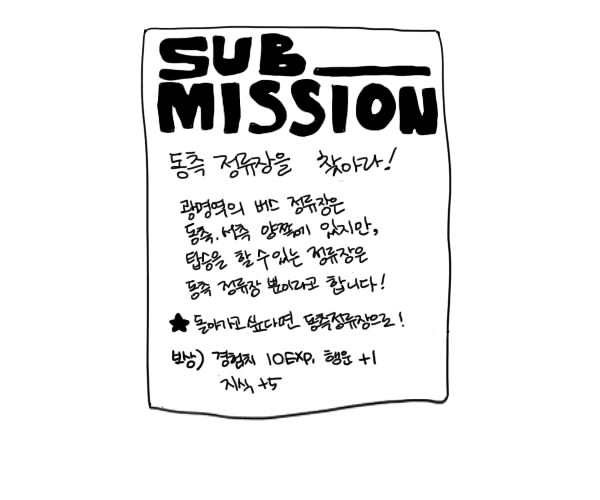 SUB
MISSION
동측 정류장을 찾아라!
광명역의 버스 정류장은
동측.서측 양쪽에 있지만,
탑승을 할 수 있는 정류장은
동측 정류장 뿐이라고 합니다!
★ 돌아가고 싶다면 동측정류장으로!
보상) 경험치 10EXP, 행운 +1
지식 +5